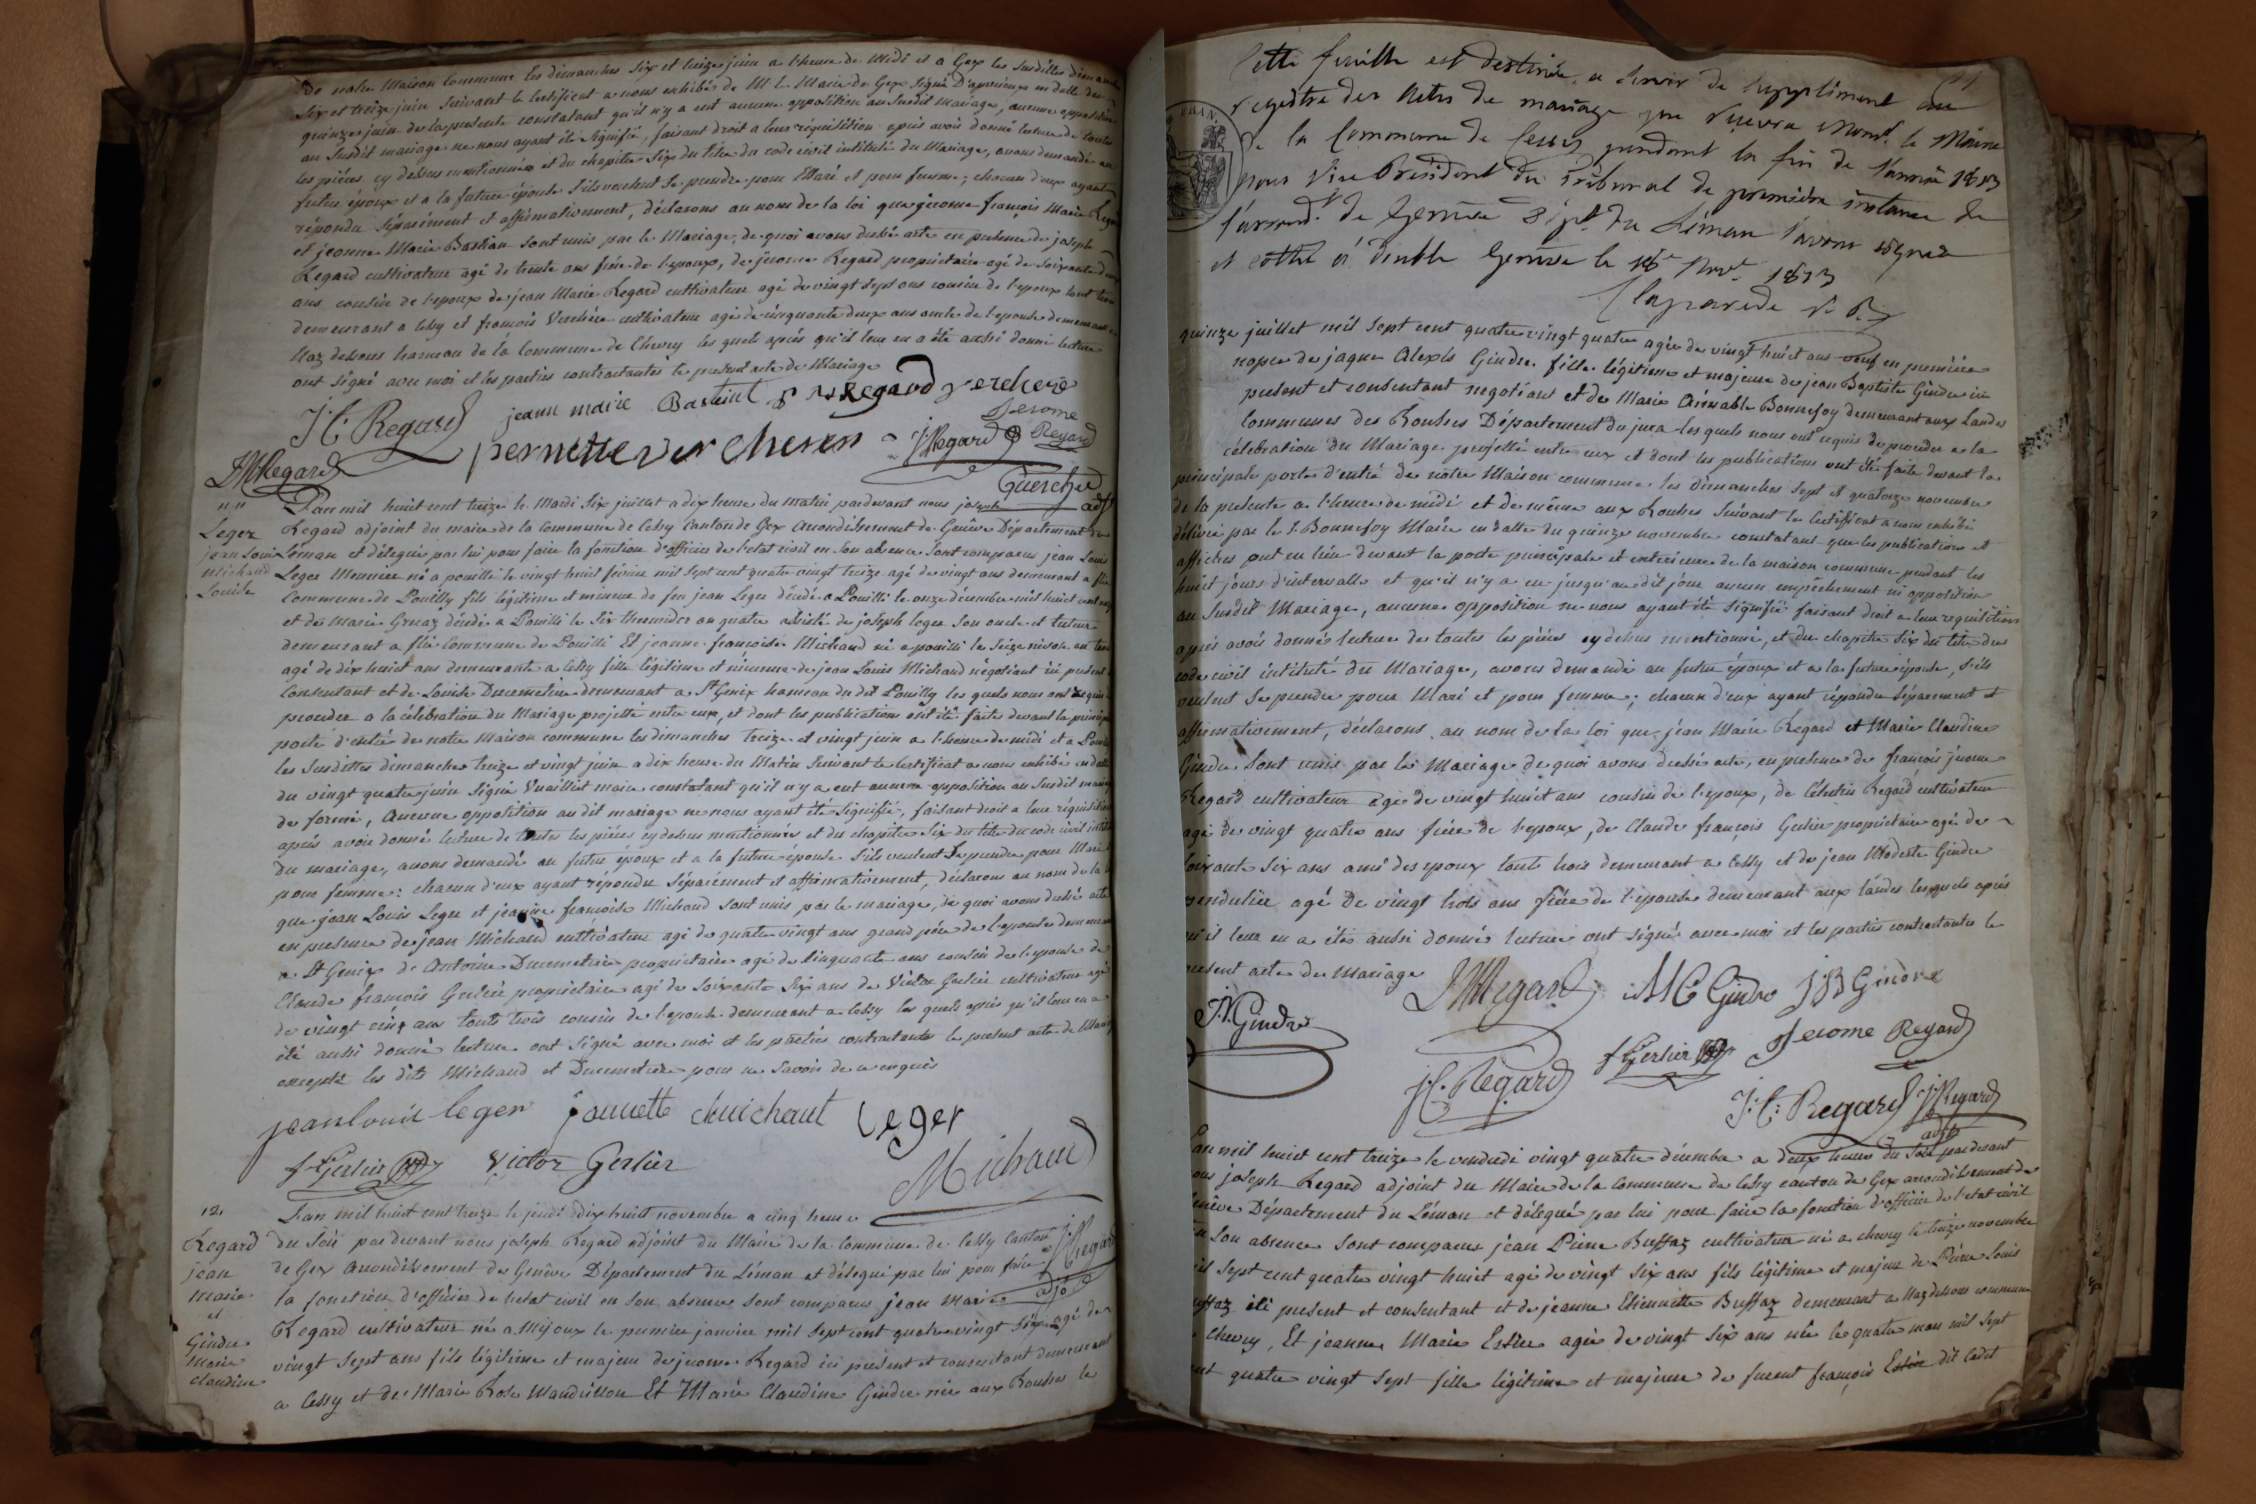 de notre Maison Commune les dimanches Six et treize juin a l'heure de Midi et a Gex les susdittes dimanches
Six et treize juin Suivant le Certificat a nous exhibé de M. Le Maire de Gex signé en datte du
quinze juin de la presente constatant qu'il n'y a eut aucune opposition au Susdit Mariage, aucune opposition
au Susdit mariage ne nous ayant été Signifiée, faisant droit a leur réquisition après avoir donné lecture de toutes
les pièces cy dessus mentionnées et du chapitre Six du titre du code civil intitulé du Mariage, avons demandé au
futur époux et a la future épouse S'ils veulent Se prendre pour Mari et pour femme; chacun d'eux ayant
répondu Séparément et affirmativement, déclarons au nom de la loi que jerome françois Marie Regard
et jeanne Marie Bastian sont unis par le Mariage, de quoi avons dressé acte en presence de joseph
Regard cultivateur agé de trente ans frère de l'epoux, de jerome Regard propriétaire agé de soixante deux
ans cousin de l'epoux de jean Marie Regard cultivateur agé de vingt sept ans cousin de l'epoux tout trois
demeurant a Cessy et françois Verchère cultivateur agé de cinquante deux ans oncle de l'epouse demeurant a
Naz dessous hameau de la Commune de Chevry les quels après qu'il leur en a été aussi donné lecture
ont signé avec moi et les parties contractantes le présent acte de Mariage
J. C. Regard jeann maire Bastient Regard verchere
Jerome Regard
pernette verchere J Regard
JM Regard
adjt
n. 11
Leger
jean Louis
Michaud
L'an mil huit cent treize le Mardi Six juillet a dix heure du matin pardevant nous joseph
Regard adjoint du maire de la Commune de Cessy Canton de Gex Arrondissement de Genêve Département du
Leman et délegué par lui pour faire la fonction d'officier de l'etat civil en Son absence Sont comparus jean Louis
Leger Meunier né a pouilli le vingt huit février mil sept cent quatre vingt treize agé de vingt ans demeurant a flie
Commune de Pouilly fils légitime et mineur de feu jean Leger décédé a Pouilli le onze décembre mil huit cent
et de Marie Grenaz décédée a Pouilli le Six thermidor an quatre assisté de joseph leger Son oncle et tuteur
demeurant a flie Commune de Pouilli Et jeanne françoise Michaud né a pouilli le Seize nivose an trois
agé de dix huit ans demeurante a Cessy fille légitime et mineure de jean Louis Michaud négotiant ici present
Consentant et de Louise Ducimetière demeurant a St Genix hameau du dit Pouilly les quels nous ont requis
proceder a la célebration du Mariage projetté entre eux, et dont les publications ont été faite devant la principale
porte d'entrée de notre Maison commune les dimanches treize et vingt juin a l'heure de midi et a Pouilli
les Susdittes dimanches treize et vingt juin a dix heure du Matin Suivant le Certificat a nous exhibé en datte
du vingt quatre juin Signé Vuaillet maire constatant qu'il n'y a eut aucune opposition au Susdit mariage
de forme, Aucune opposition au dit mariage ne nous ayant été Signifiée, faisant droit a leur réquisition
après avoir donné lecture de toutes les pièces cydessus mentionnées et du chapitre Six du titre du code civil intitulé
du mariage, avons demandé au futur époux et a la future épouse S'ils veulent Se prendre pour Mari et
pour femme: chacun d'eux ayant répondu Séparément et affirmativement, déclarons au nom de la loi
que jean Louis Leger et jeanne françoise Michaud sont unis par le mariage, de quoi avons dressé acte
en presence de jean Michaud cultivateur agé de quatre vingt ans grand père de l'epouse demeurant
a St Genix de Antoine Ducimetière propriétaire agé de Cinquante ans cousin de l'epouse de
Claude françois Gerlier propriétaire agé de soixante Six ans de Victor Gerlier cultivateur agé
de vingt cinq ans touts trois cousin de l'epouse demeurant a Cessy les quels après qu'il leur en a
été aussi donné lecture ont Signé avec moi et les parties contractantes le présent acte de Mariage
excepté les dits Michaud et Ducimetière pour ne Savoir de ce enquis
jean louis leger jannette michaut Leger
f Gerlier Victor Gerlier Michaud
12.
Regard
jean
marie
et
Gindre
marie
claudine
L'an mil huit cent treize le jeudi dix huit novembre a cinq heure
du Soir pardevant nous joseph Regard adjoint du Maire de la Commune de Cessy Canton
de Gex Arrondissement de Genêve Département du Léman et délegué par lui pour faire
la fonction d'officier de l'etat civil en Son absence Sont comparus jean Marie
Regard cultivateur né a Mijoux le premier janvier mil Sept cent quatre vingt Six agé de
vingt Sept ans fils légitime et majeur de jerome Regard ici présent et consentant demeurant
a Cessy et de Marie Rose Mandrillon Et Marie Claudine Gindre née aux Rousses le
J Regard
adjt
Cette feuille est destinée a servir de supplément au
registre des Actes de mariage que recevra Monsr. le Maire
de la Commune de Cessy pendant la fin de l'année 1813
nous Vice Président du Tribunal de première instance de
l'arrondt. de Genève Dépt. du Léman l'avons signée
et cottée à double Genève le 18e Nov. 1813
Claparede v. P.
quinze juillet mil Sept cent quatre vingt quatre agée de vingt huit ans veuf en première
nopce de jaques Alexis Gindre fille légitime et majeure de jean Baptiste Gindre ici
présent et consentant negotiant et de Marie Aimable Bonnefoy demeurant aux Landes
Commune des Rousses Département du jura les quels nous ont requis de proceder a la
célébration du Mariage projetté entre eux et dont les publications ont été faite devant la
principale porte d'entrée de notre Maison commune les dimanches Sept et quatorze novembre
de la presente a l'heure de midi et de même aux Rousses Suivant le Certificat a nous exhibé
délivré par le S. Bonnefoy Maire en datte du quinze novembre constatant que les publications et
affiches ont eu lieu devant la porte principale et extérieure de la maison commune pendant les
huit jours d'intervalle et qu'il n'y a eu jusqu'au dit jour aucun empêchement ni opposition
au Susdit Mariage, aucune opposition ne nous ayant été Signifiée faisant droit a leur requisition
après avoir donnée lecture de toutes les pièces cy dessus mentionnée, et du chapitre Six du titre du
code civil intitulé du Mariage, avons demandé au futur époux et a la future épouse, S'ils
veulent Se prendre pour Mari et pour femme; chacun d'eux ayant répondu Séparément et
affirmativement, déclarons au nom de la loi que jean Marie Regard et Marie Claudine
Gindre Sont unis par le Mariage de quoi avons dressé acte, en presence de françois jerome
Regard cultivateur agé de vingt huit ans cousin de l'epoux, de Célestin Regard cultivateur
agé de vingt quatre ans frère de l'epoux, de Claude françois Gerlier propriétaire agé de
soixante Six ans ami des epoux touts trois demeurant a Cessy et de jean Modeste Gindre
pendulier agé de vingt trois ans frère de l'epouse demeurant aux landes lesquels après
qu'il leur en a été aussi donnée lecture ont Signé avec moi et les parties contractantes le
présent acte de Mariage
JM Regard MC Gindre JB Gindre
Gindre
J. C. Regard f Gerlier Jerome Regard
J. C. Regard J Regard
adjt
L'an mil huit cent treize le vendredi vingt quatre décembre a deux heures du Soir pardevant
nous joseph Regard adjoint du Maire de la Commune de Cessy canton de Gex arrondissement de
Genêve Département du Léman et délegué par lui pour faire la fonction d'officier de l'etat civil
en Son absence Sont comparus jean Pierre Buffaz cultivateur né a chevry le treize novembre
mil Sept cent quatre vingt huit agé de vingt Six ans fils légitime et majeur de Pierre Louis
Buffaz ici present et consentant et de jeanne Etiennette Buffaz demeurant a Naz dessous commune
de Chevry, Et jeanne Marie Estier agée de vingt Six ans née le quatre mars mil Sept
cent quatre vingt Sept fille légitime et majeure de furent françois Estier dit Cadet